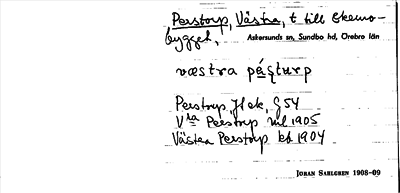 Perstorp, Västra, t till Skemo-
bygget, Askersunds sn, Sundbo hd, Örebro län
væstra
Perstorp, Hek, G 54
V:ra Perstorp ml 1905
Västra Perstorp kd 1904
JOHAN SAHLGREN 1908–09